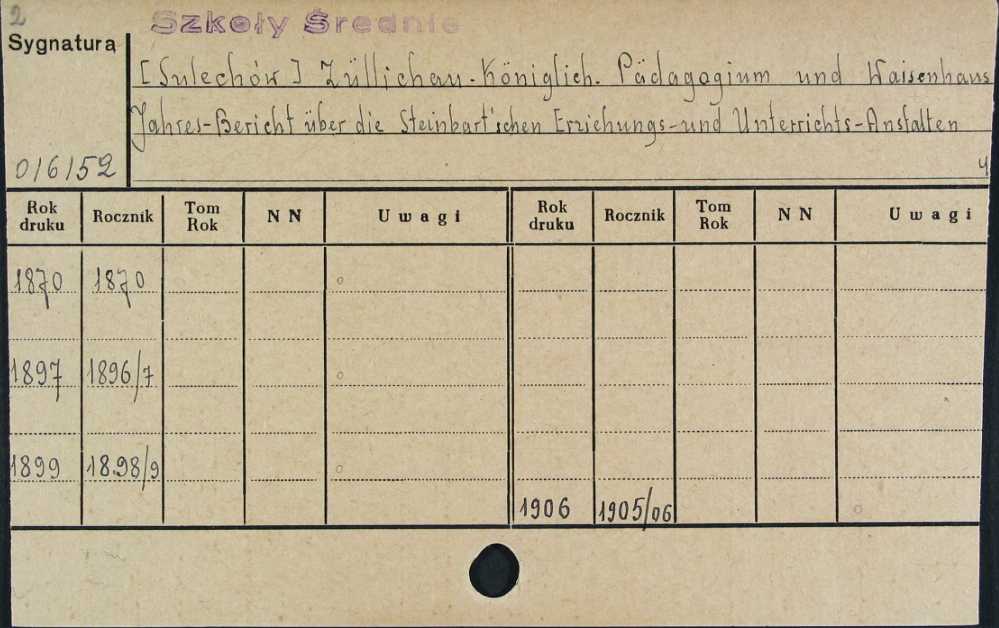 2
Szkoły Średnie
Sygnatura
[Sulechów] Züllichau. Königlich. Pädagogium und Waisenhaus
Jahres-Bericht über die Steinbart'schen Erziehungs- und Unterrichts-Anstalten
016152
4
Rok druku Rocznik Tom Rok NN Uwagi Rok druku Rocznik Tom Rok NN Uwagi
1870 1870 o
1897 1896/7 o
1899 1898/9 o
1906 1905/06 o